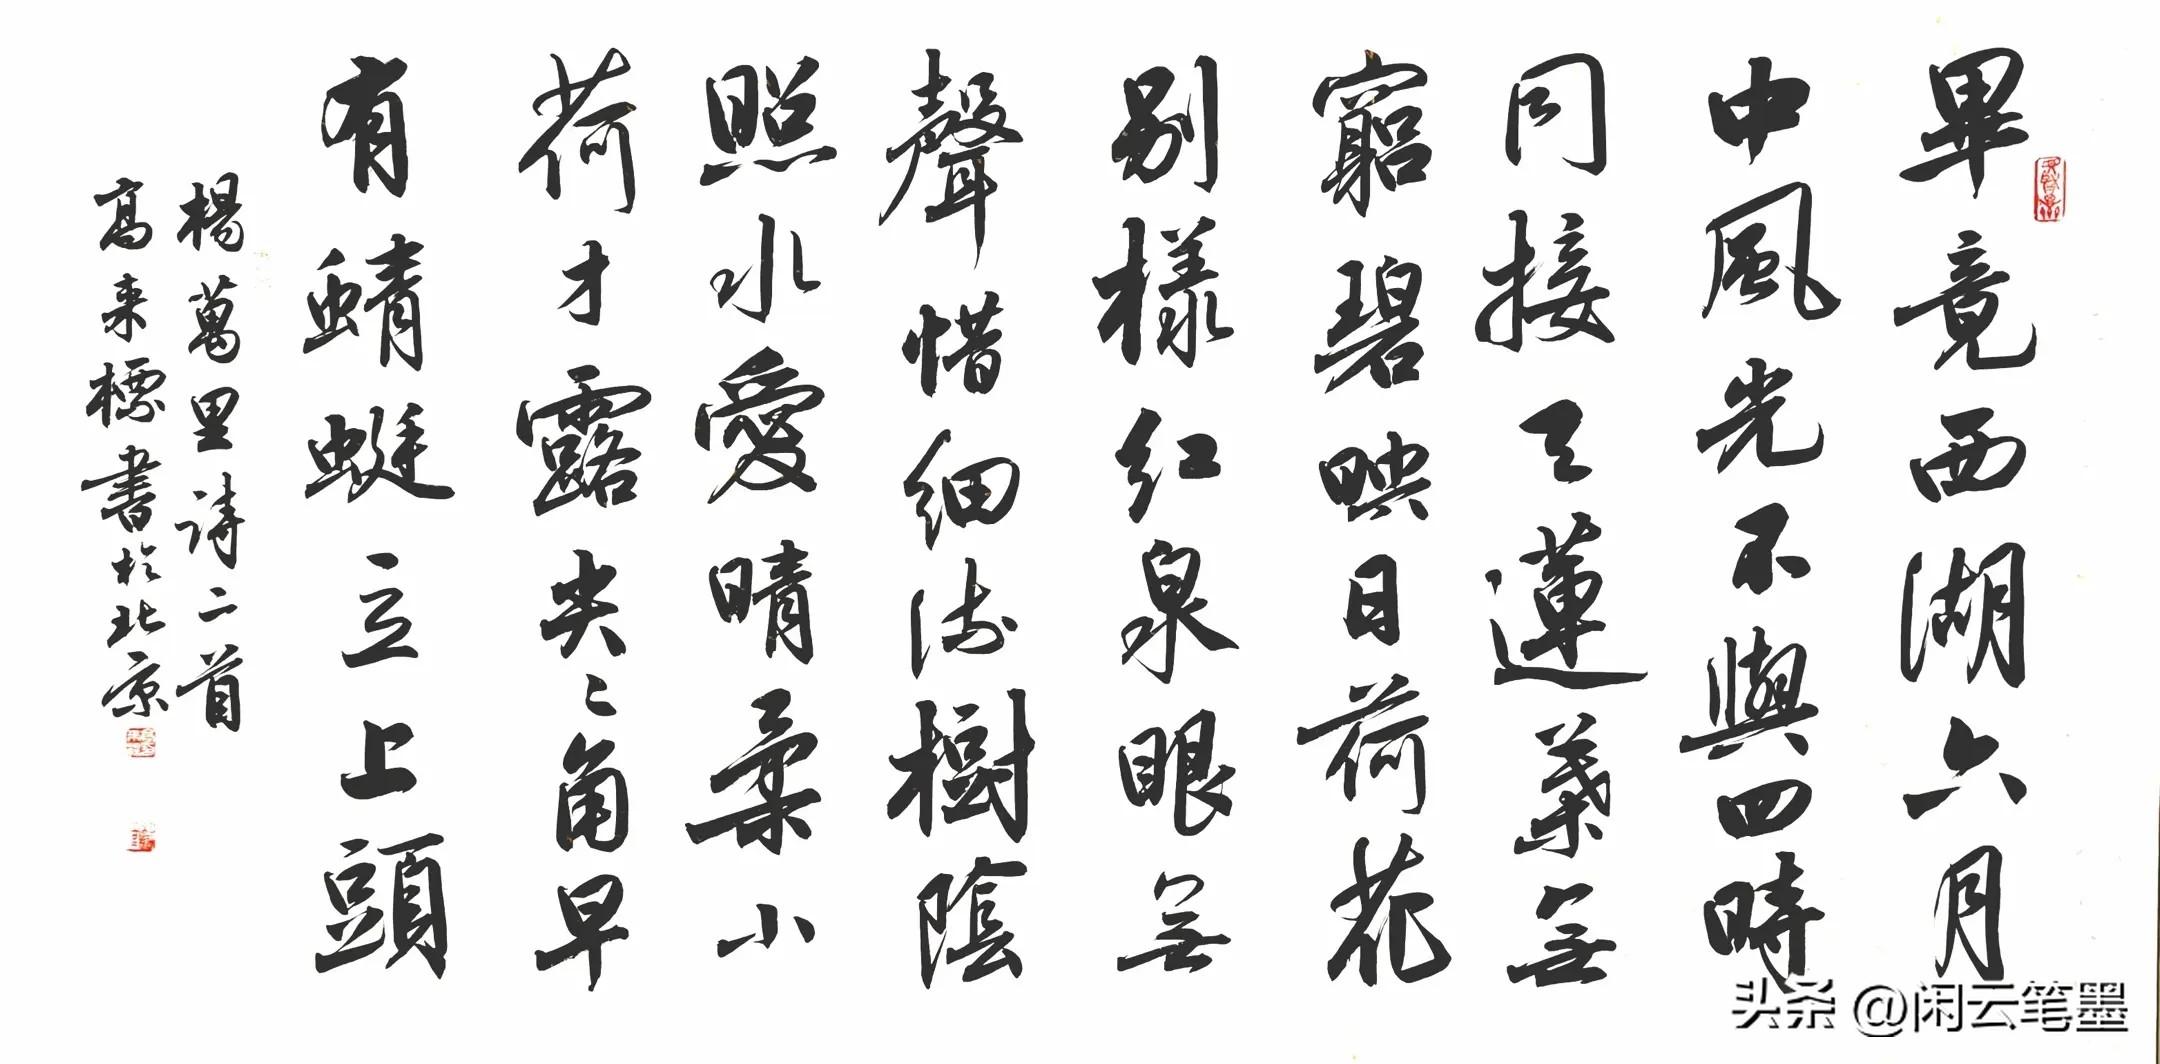 畢竟西湖六月
中風光不與四時
同接天蓮葉無
窮碧映日荷花
别樣紅泉眼無
聲惜細流樹陰
照水愛晴柔小
荷才露尖〻角早
有蜻蜓立上頭
楊萬里詩二首
高来標書於北京
头条 @闲云笔墨